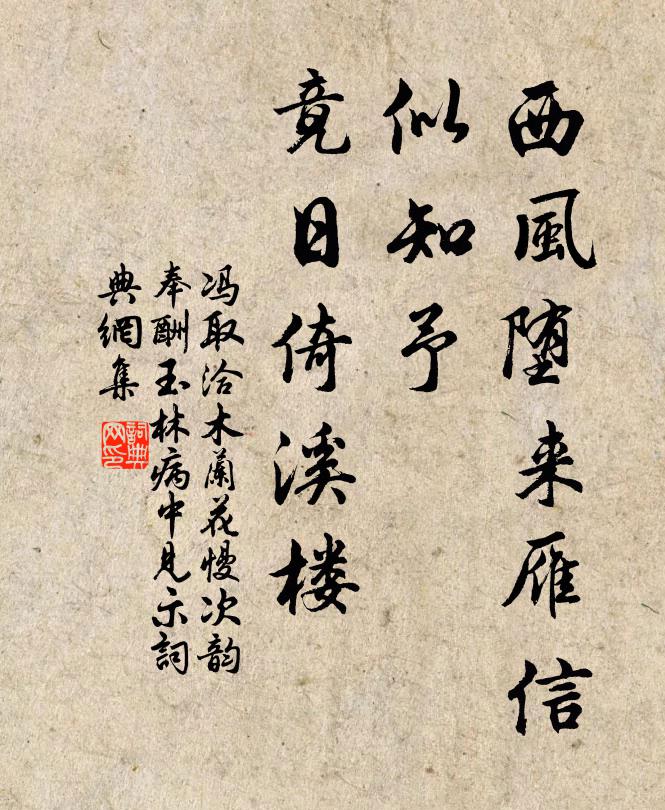 西風堕来雁信
似知予
竟日倚溪楼
冯取洽木蘭花慢次韵
奉酬玉林病中見示詞
典網集
詞典網印